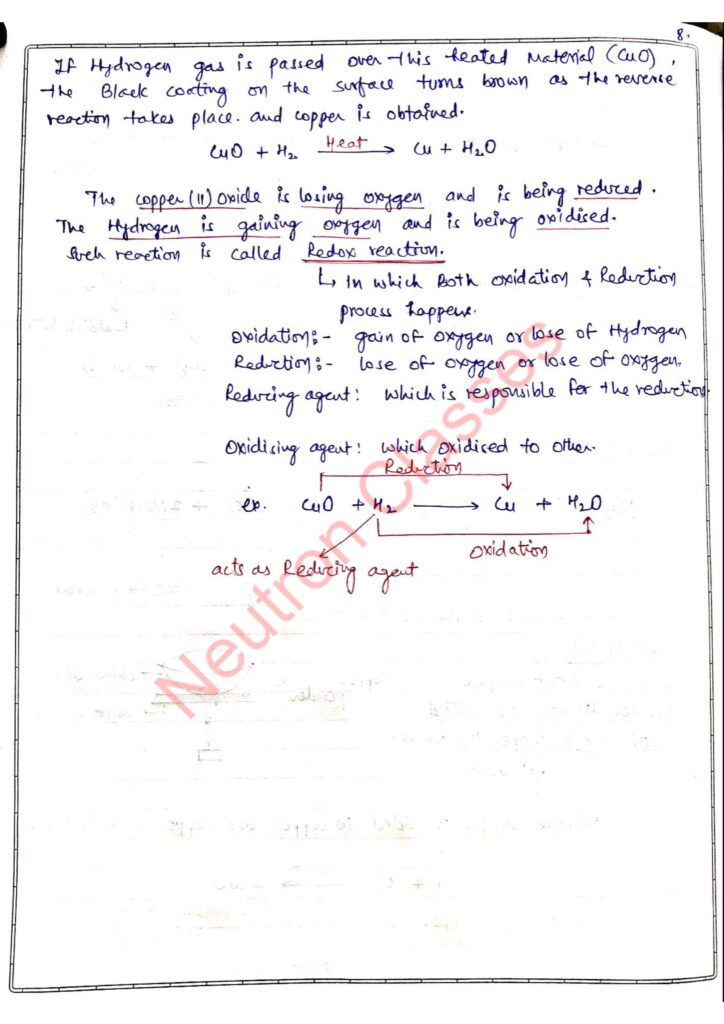 8.
If Hydrogen gas is passed over this heated Material (CuO),
the Black coating on the surface turns brown as the reverse
reaction takes place. and copper is obtained.
CuO + H₂ —Heat→ Cu + H₂O
The copper (II) oxide is losing oxygen and is being reduced.
The Hydrogen is gaining oxygen and is being oxidised.
Such reaction is called Redox reaction.
↳ In which Both oxidation & Reduction
process happens.
Oxidation:- gain of oxygen or lose of Hydrogen
Reduction:- lose of oxygen or lose of oxygen.
Reducing agent: which is responsible for the reduction.
Oxidising agent: which oxidised to other.
Reduction
ex. CuO + H₂ → Cu + H₂O
Oxidation
acts as Reducing agent
Neutron Classes